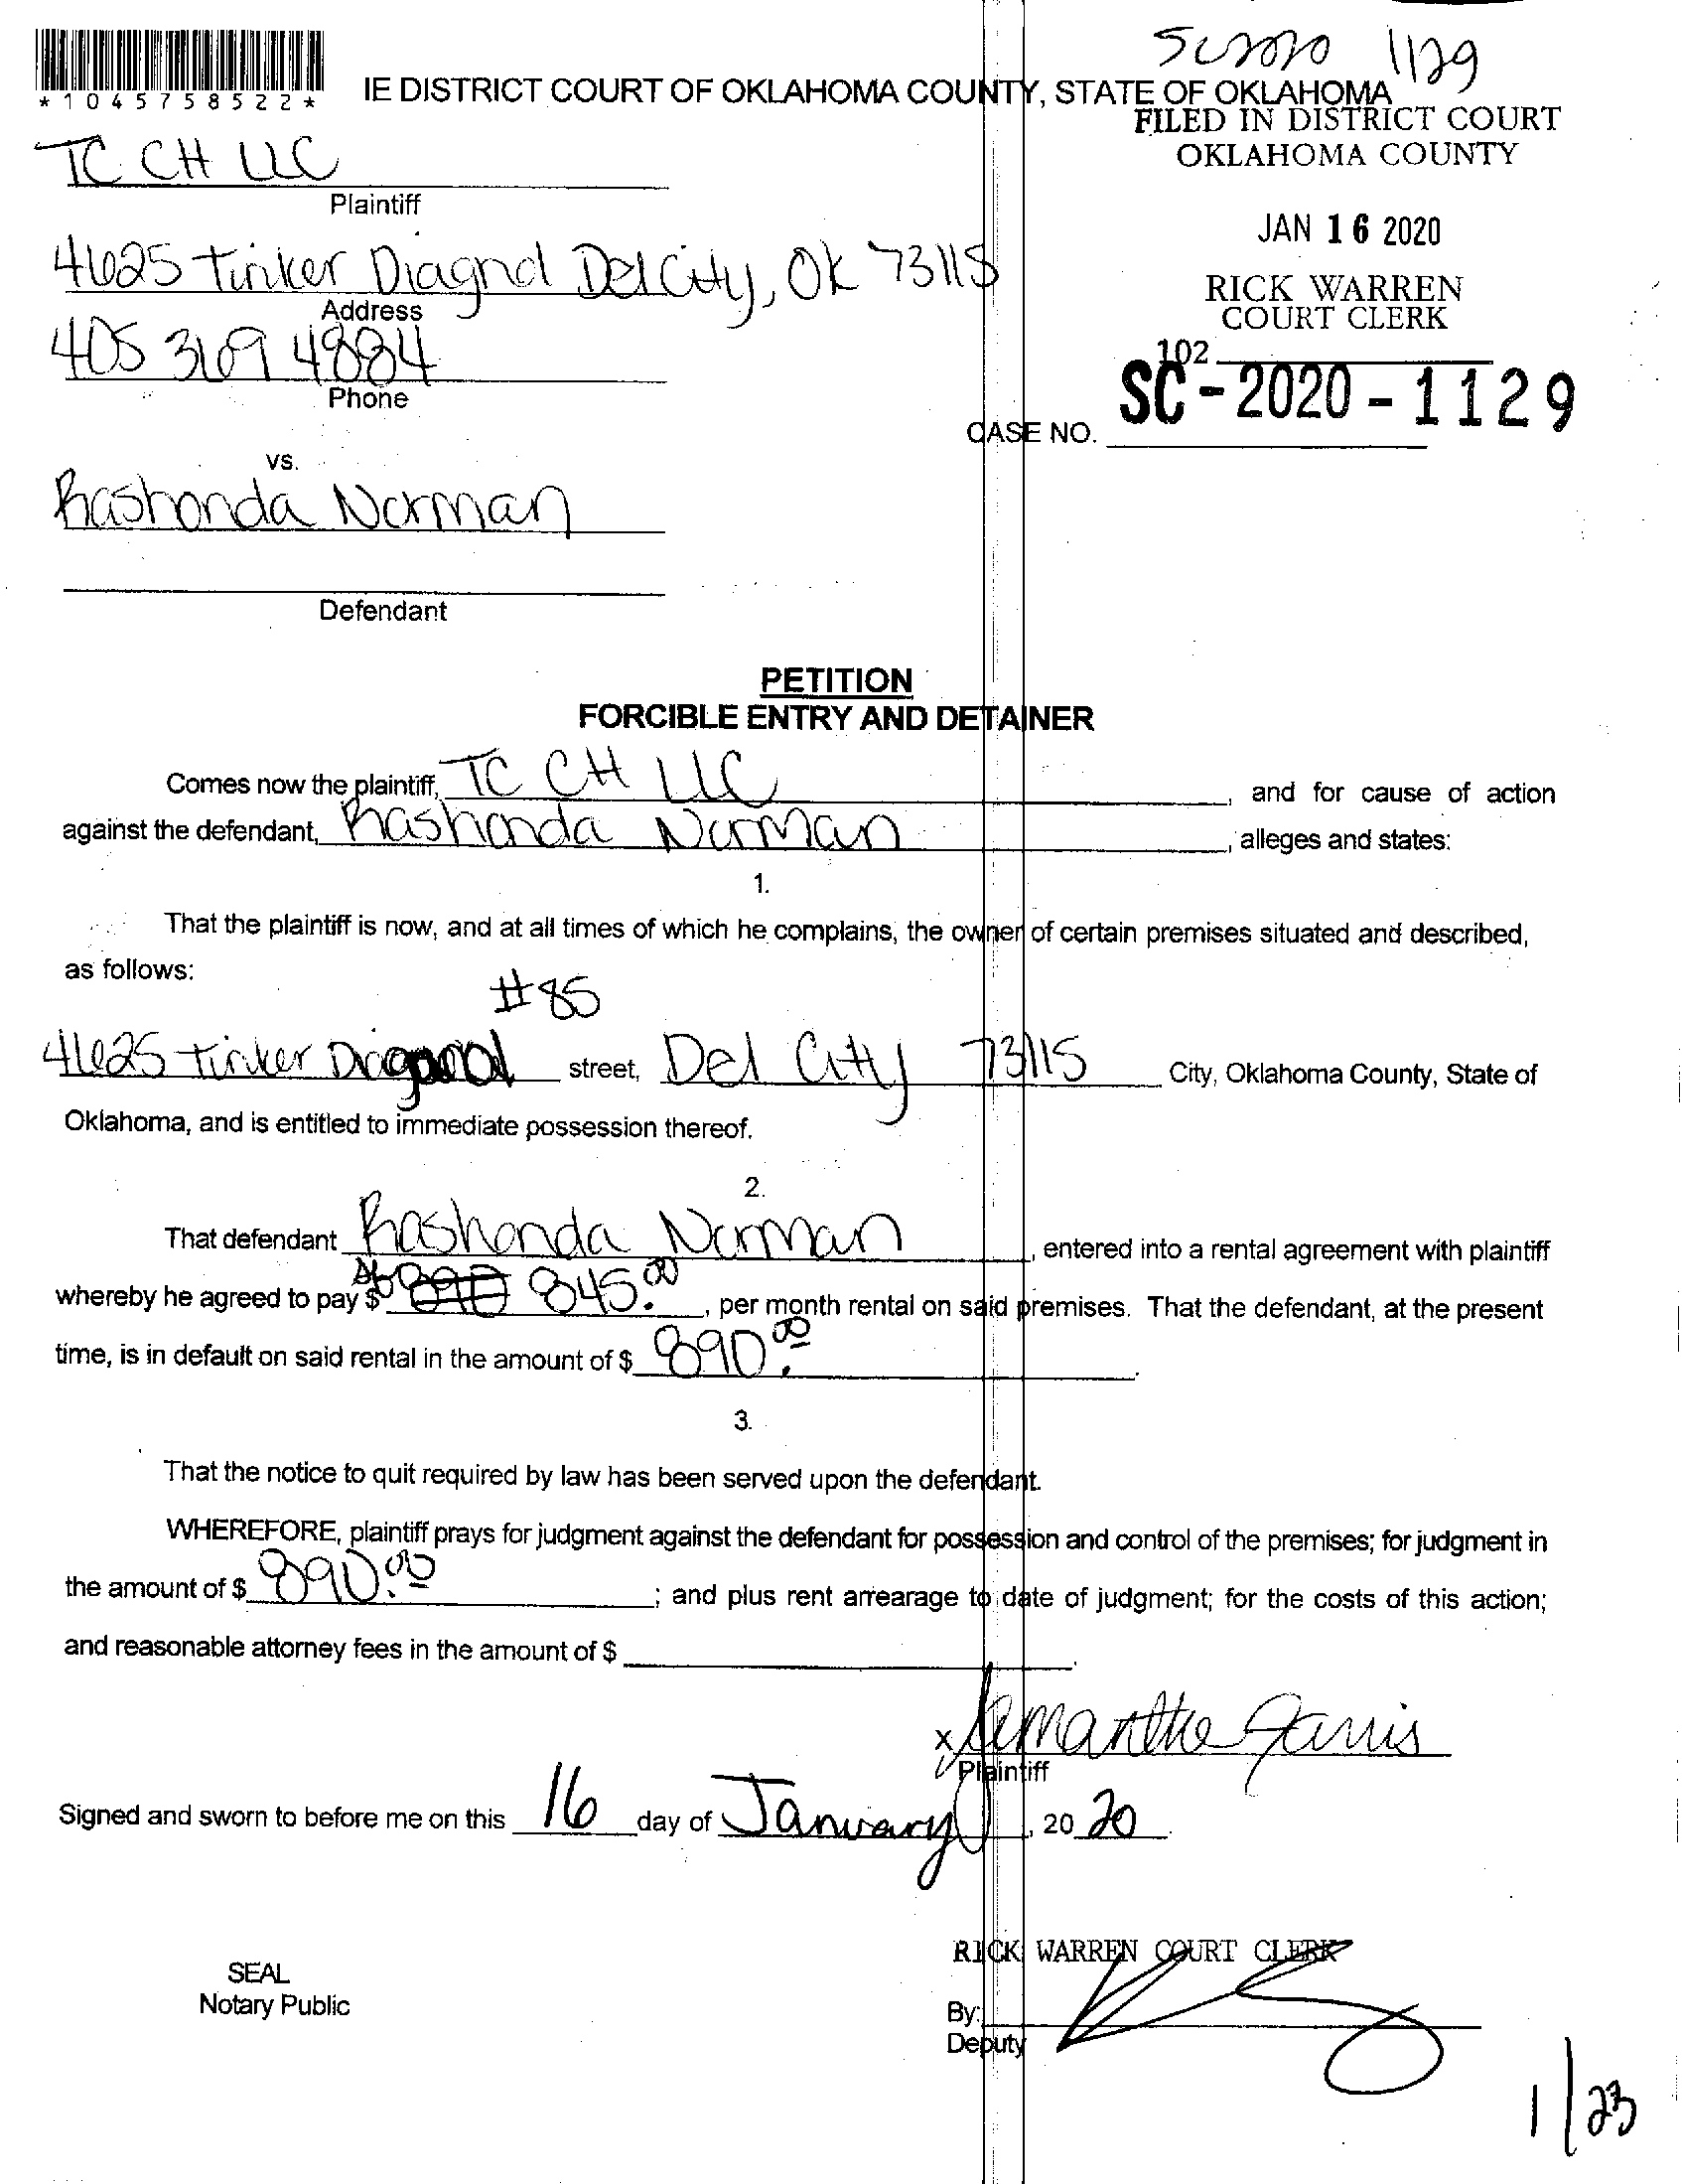 SC2020 1129
*1045758522*
IE DISTRICT COURT OF OKLAHOMA COUNTY, STATE OF OKLAHOMA
FILED IN DISTRICT COURT
OKLAHOMA COUNTY
TC CH LLC
Plaintiff
JAN 16 2020
4625 Tinker Diagnol Del City, OK 73115
Address
RICK WARREN
COURT CLERK
405 369 4884
Phone
102
SC-2020-1129
CASE NO.
vs.
Rashonda Norman
Defendant
PETITION
FORCIBLE ENTRY AND DETAINER
Comes now the plaintiff, TC CH LLC, and for cause of action
against the defendant, Rashonda Norman, alleges and states:
1.
That the plaintiff is now, and at all times of which he complains, the owner of certain premises situated and described,
as follows:
#85
4625 Tinker Diagonal street, Del City 73115 City, Oklahoma County, State of
Oklahoma, and is entitled to immediate possession thereof.
2.
That defendant Rashonda Norman, entered into a rental agreement with plaintiff
whereby he agreed to pay $ 890 845.00, per month rental on said premises. That the defendant, at the present
time, is in default on said rental in the amount of $ 890.00.
3.
That the notice to quit required by law has been served upon the defendant.
WHEREFORE, plaintiff prays for judgment against the defendant for possession and control of the premises; for judgment in
the amount of $ 890.00; and plus rent arrearage to date of judgment; for the costs of this action;
and reasonable attorney fees in the amount of $.
x Samantha
Plaintiff
Signed and sworn to before me on this 16 day of January, 2020.
RICK WARREN COURT CLERK
SEAL
Notary Public
By:
Deputy
1/23